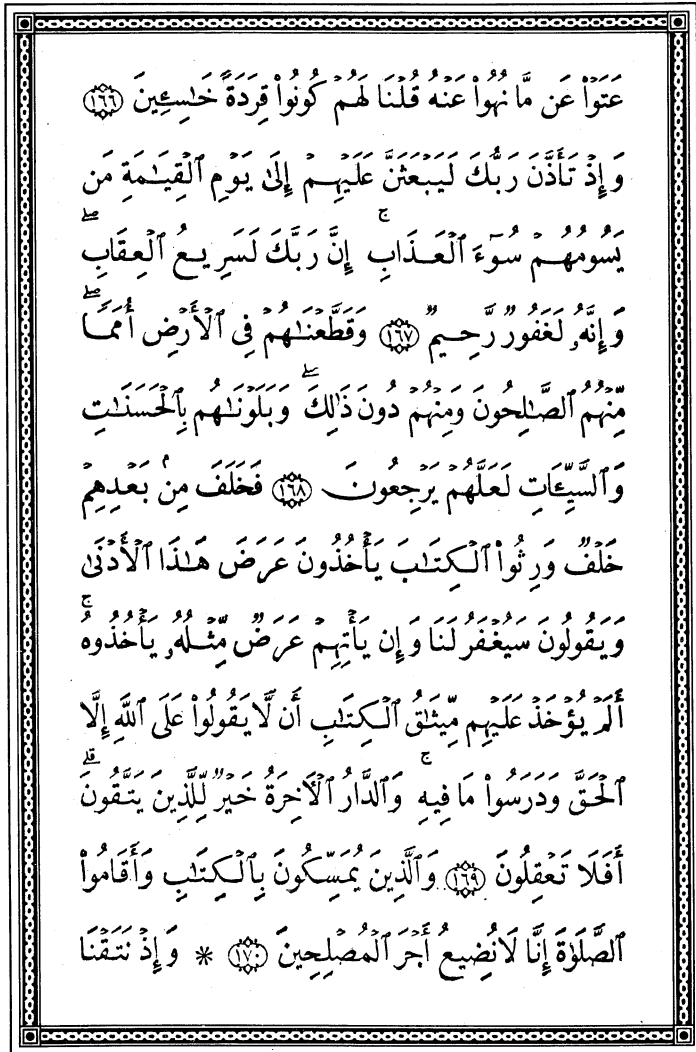 عَتَوۡاْ عَن مَّا نُهُواْ عَنۡهُ قُلۡنَا لَهُمۡ كُونُواْ قِرَدَةً خَٰسِـِٔينَ ١٦٦
وَإِذۡ تَأَذَّنَ رَبُّكَ لَيَبۡعَثَنَّ عَلَيۡهِمۡ إِلَىٰ يَوۡمِ ٱلۡقِيَٰمَةِ مَن
يَسُومُهُمۡ سُوٓءَ ٱلۡعَذَابِۚ إِنَّ رَبَّكَ لَسَرِيعُ ٱلۡعِقَابِۖ
وَإِنَّهُۥ لَغَفُورٞ رَّحِيمٞ ١٦٧ وَقَطَّعۡنَٰهُمۡ فِي ٱلۡأَرۡضِ أُمَمٗاۖ
مِّنۡهُمُ ٱلصَّٰلِحُونَ وَمِنۡهُمۡ دُونَ ذَٰلِكَۖ وَبَلَوۡنَٰهُم بِٱلۡحَسَنَٰتِ
وَٱلسَّيِّـَٔاتِ لَعَلَّهُمۡ يَرۡجِعُونَ ١٦٨ فَخَلَفَ مِنۢ بَعۡدِهِمۡ
خَلۡفٞ وَرِثُواْ ٱلۡكِتَٰبَ يَأۡخُذُونَ عَرَضَ هَٰذَا ٱلۡأَدۡنَىٰ
وَيَقُولُونَ سَيُغۡفَرُ لَنَا وَإِن يَأۡتِهِمۡ عَرَضٞ مِّثۡلُهُۥ يَأۡخُذُوهُۚ
أَلَمۡ يُؤۡخَذۡ عَلَيۡهِم مِّيثَٰقُ ٱلۡكِتَٰبِ أَن لَّا يَقُولُواْ عَلَى ٱللَّهِ إِلَّا
ٱلۡحَقَّ وَدَرَسُواْ مَا فِيهِۚ وَٱلدَّارُ ٱلۡأٓخِرَةُ خَيۡرٞ لِّلَّذِينَ يَتَّقُونَۚ
أَفَلَا تَعۡقِلُونَ ١٦٩ وَٱلَّذِينَ يُمَسِّكُونَ بِٱلۡكِتَٰبِ وَأَقَامُواْ
ٱلصَّلَوٰةَ إِنَّا لَا نُضِيعُ أَجۡرَ ٱلۡمُصۡلِحِينَ ١٧٠ * وَإِذۡ نَتَقۡنَا